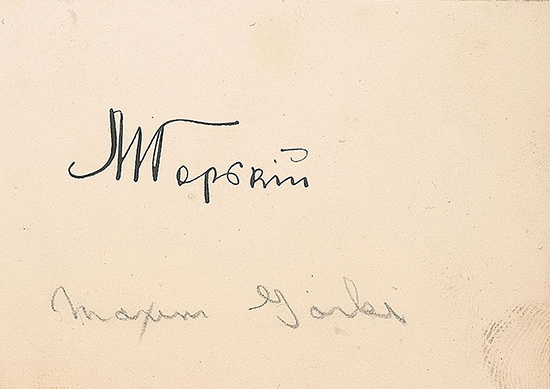 М Горькій
Maxim Gorki